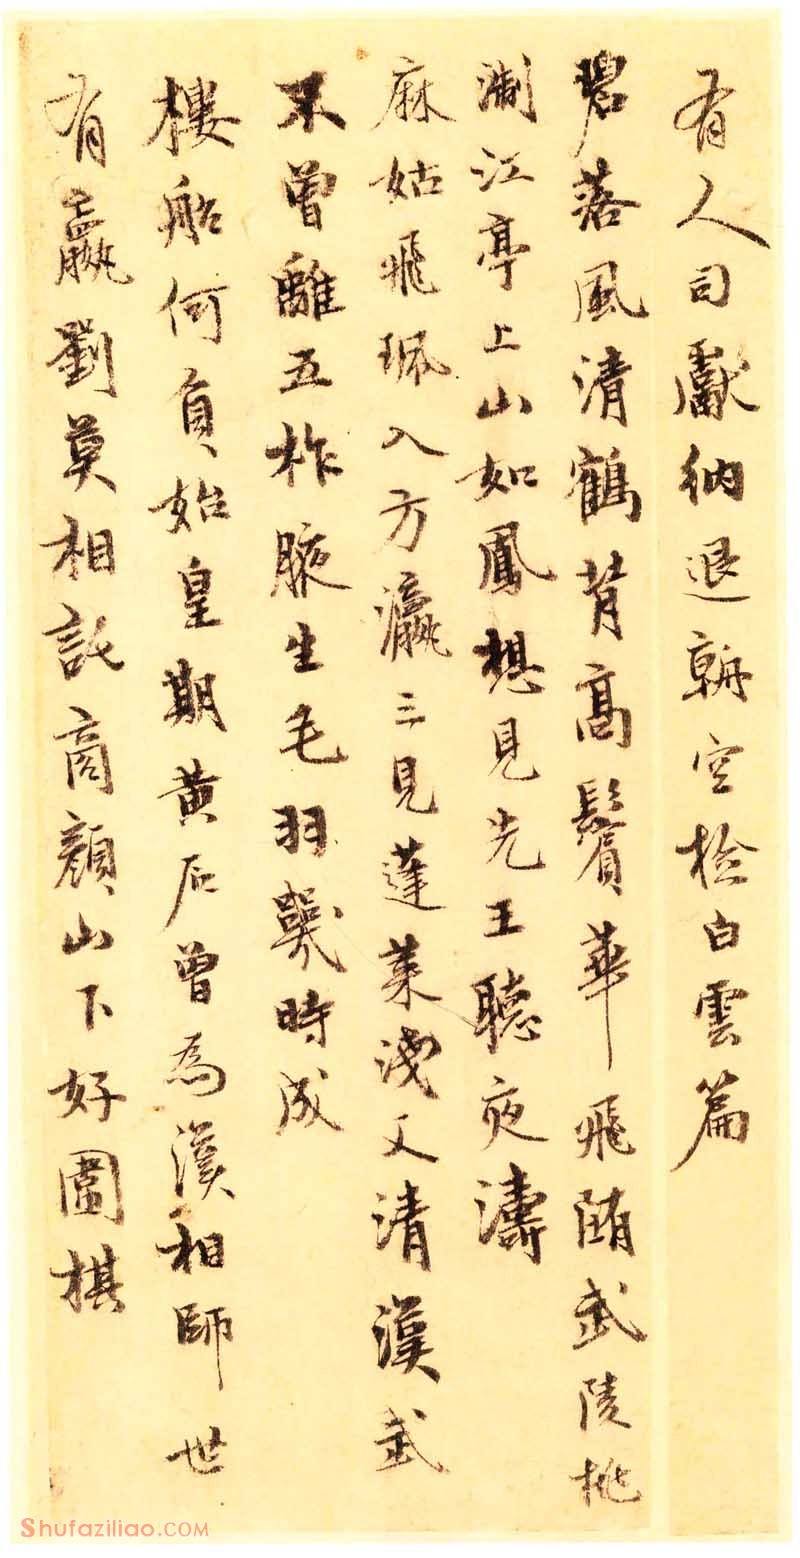 有人司獻納退朝空檢白雲篇
碧落風清鶴背高鬢華飛隨武陵桃
淛江亭上山如鳳想見先王聽夜濤
麻姑飛珮入方瀛三見蓬萊淺又清漢武
不曾離五柞腋生毛羽幾時成
樓船何負始皇期黃石曾為漢相師世
有嬴劉莫相託商顏山下好圍棋
Shufaziliao.COM